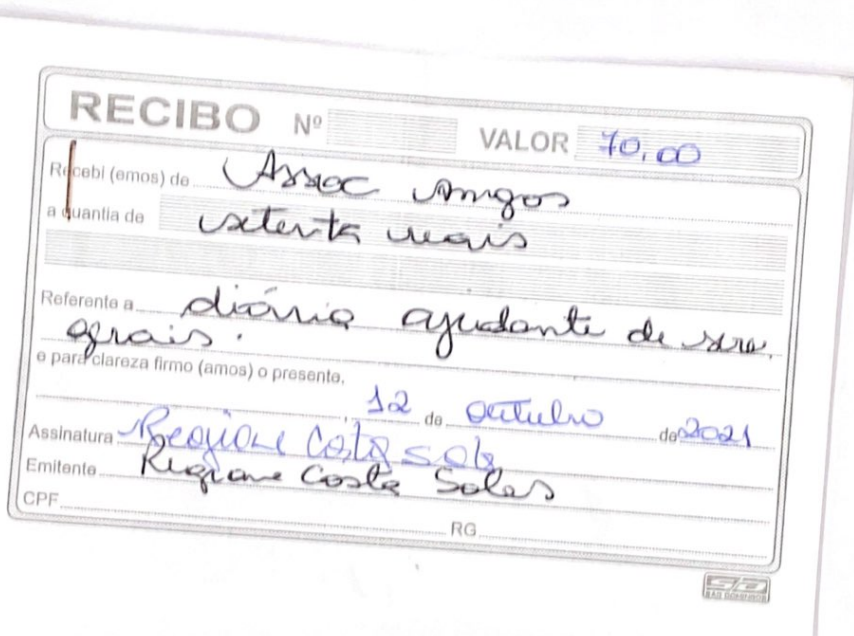 RECIBO Nº VALOR 70,00
Recebi (emos) de Assoc Amigos
a quantia de setenta reais
Referente a diária ajudante de serv.
grais.
e para clareza firmo (amos) o presente.
, 12 de outubro de 2021
Assinatura Regiane Costa Sales
Emitente Regiane Costa Sales
CPF RG
SD
SÃO DOMINGOS